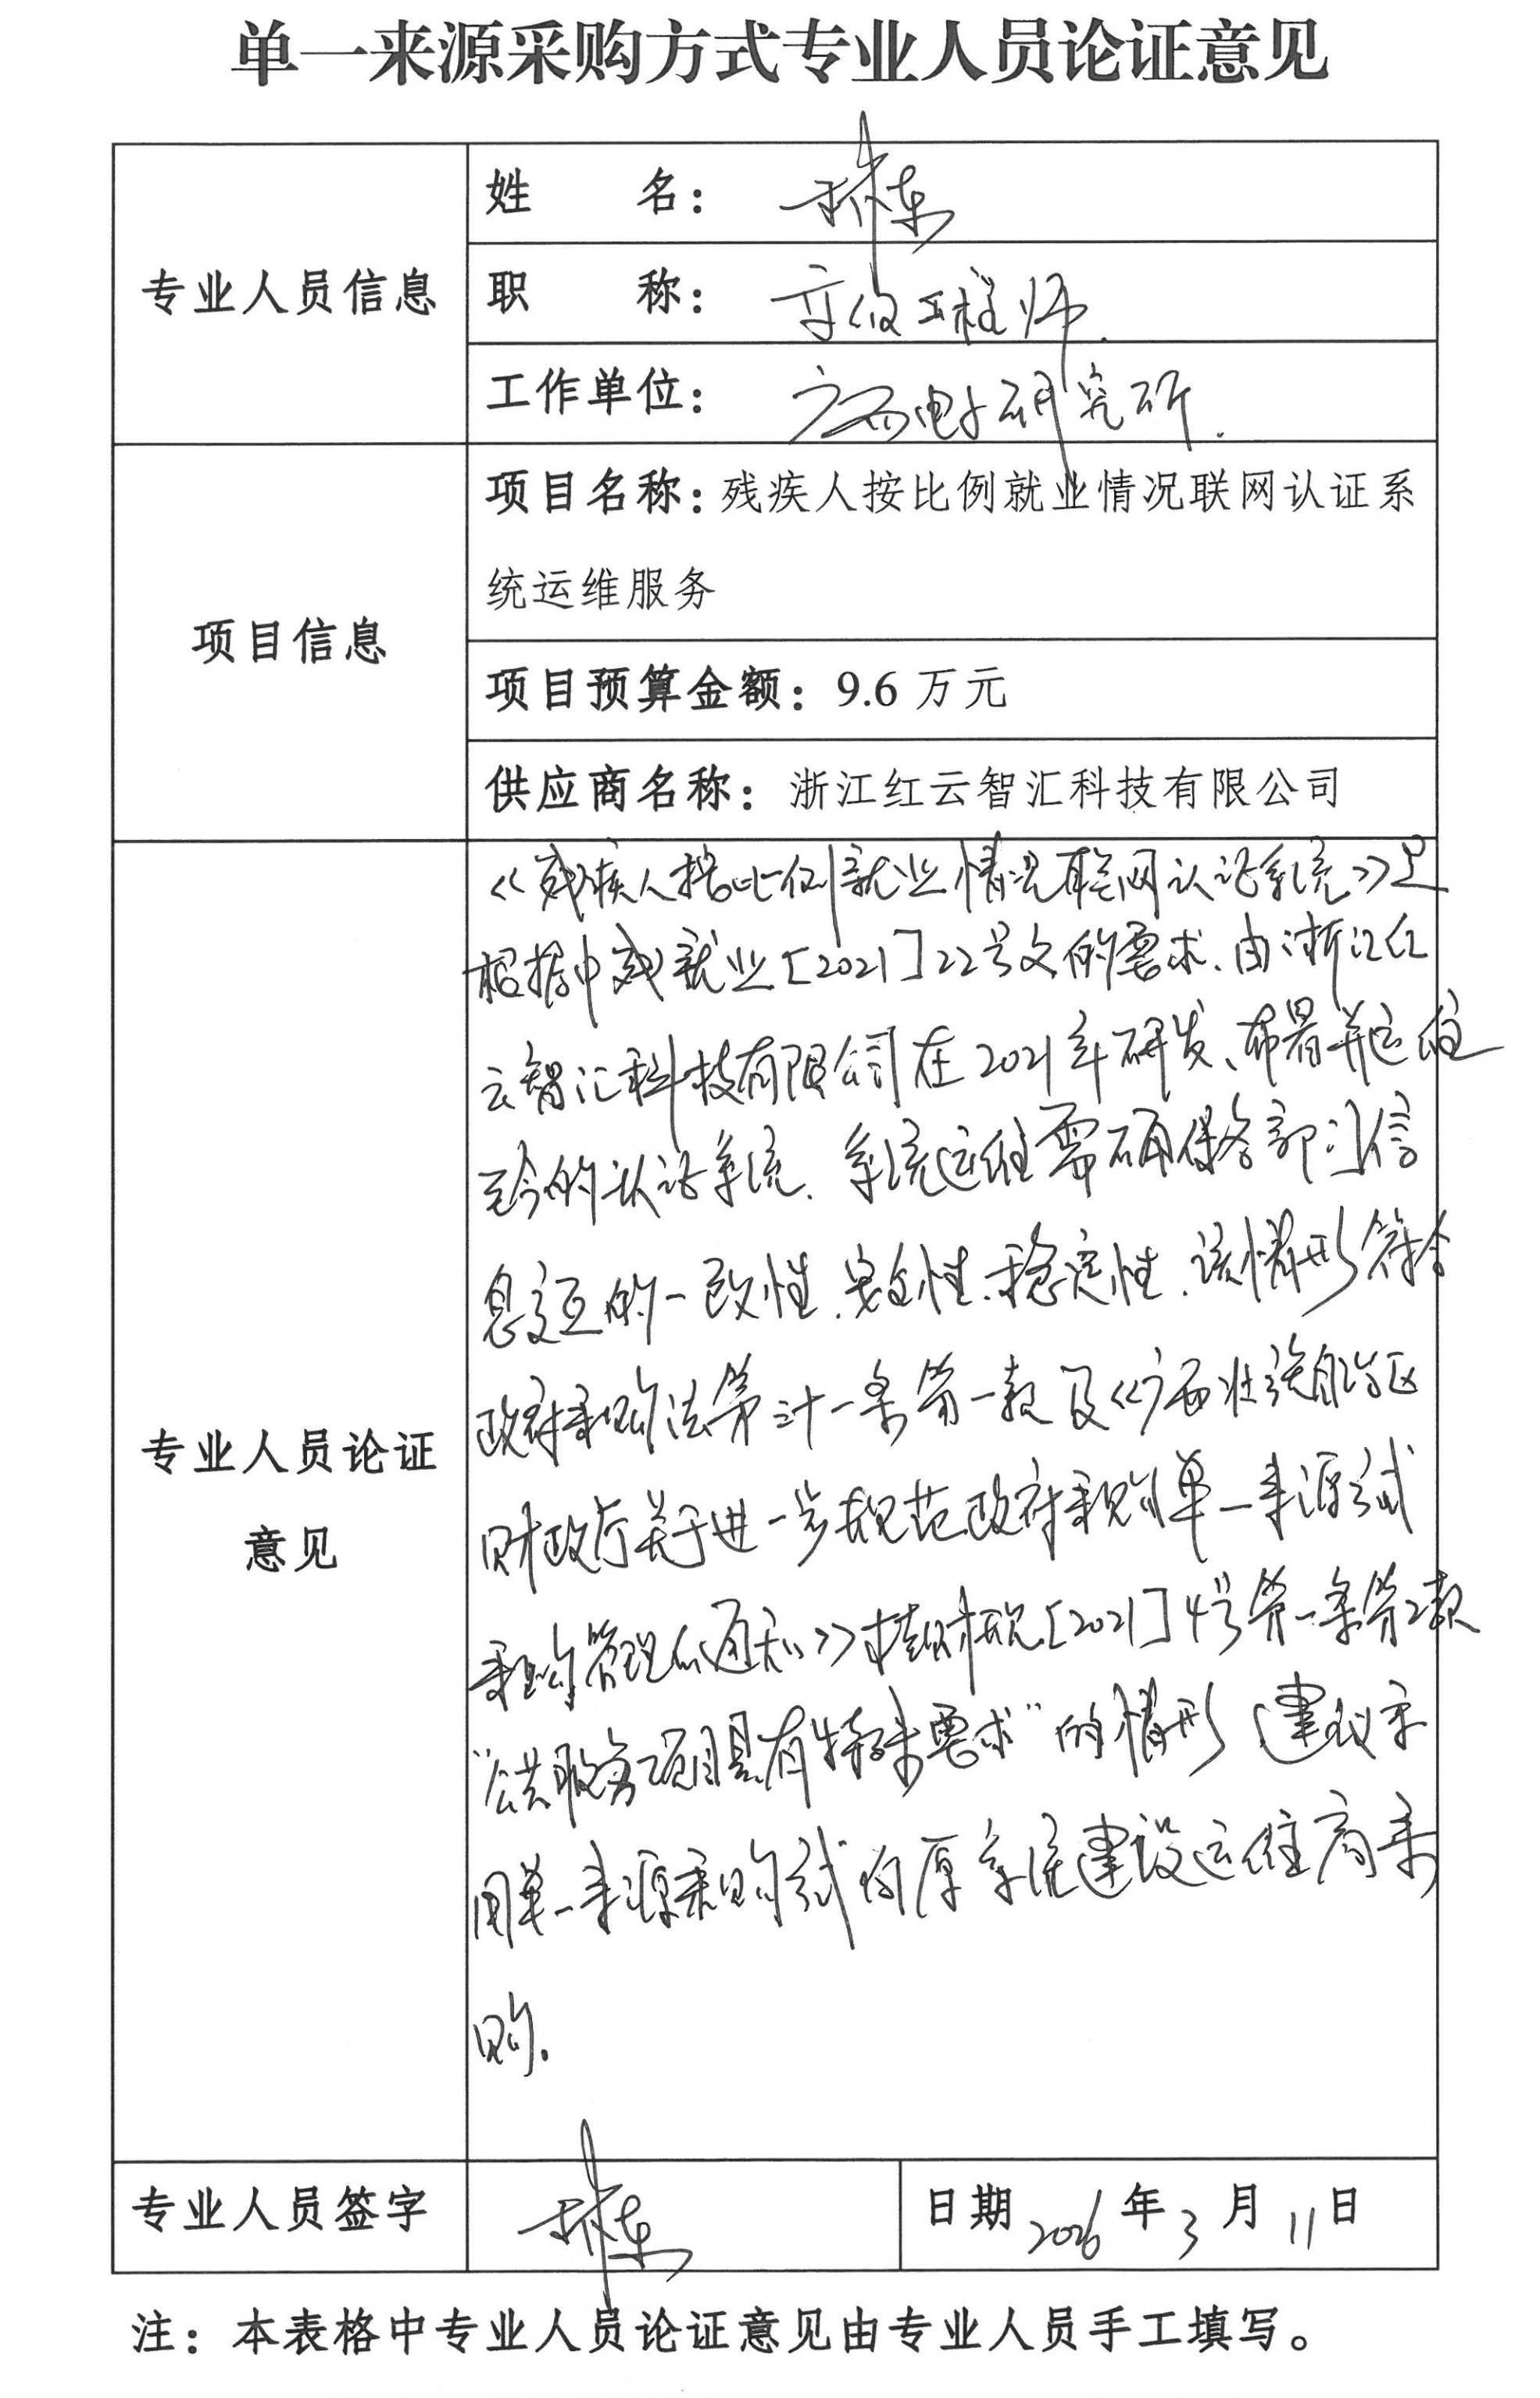 单一来源采购方式专业人员论证意见
专业人员信息
姓 名：
职 称：高级工程师.
工作单位：广西电子研究所.
项目信息
项目名称：残疾人按比例就业情况联网认证系
统运维服务
项目预算金额：9.6 万元
供应商名称：浙江红云智汇科技有限公司
专业人员论证
意见
《残疾人按比例就业情况联网认证系统》是
根据中残就业[2021]22号文的要求、由浙江红
云智汇科技有限公司在2021年研发、布署并运维
至今的认证系统、系统运维需确保各部门信
息交互的一致性、安全性、稳定性、该情形符合
政府采购法第三十一条第一款及《广西壮族自治区
财政厅关于进一步规范政府采购单一来源方式
采购管理的通知》桂财规[2021]4号第一条第2款
“公共服务项目具有特殊要求”的情形 建议采
用单一来源采购方式向原系统建设运维商采
购.
专业人员签字
日期 2026 年 3 月 11 日
注：本表格中专业人员论证意见由专业人员手工填写。